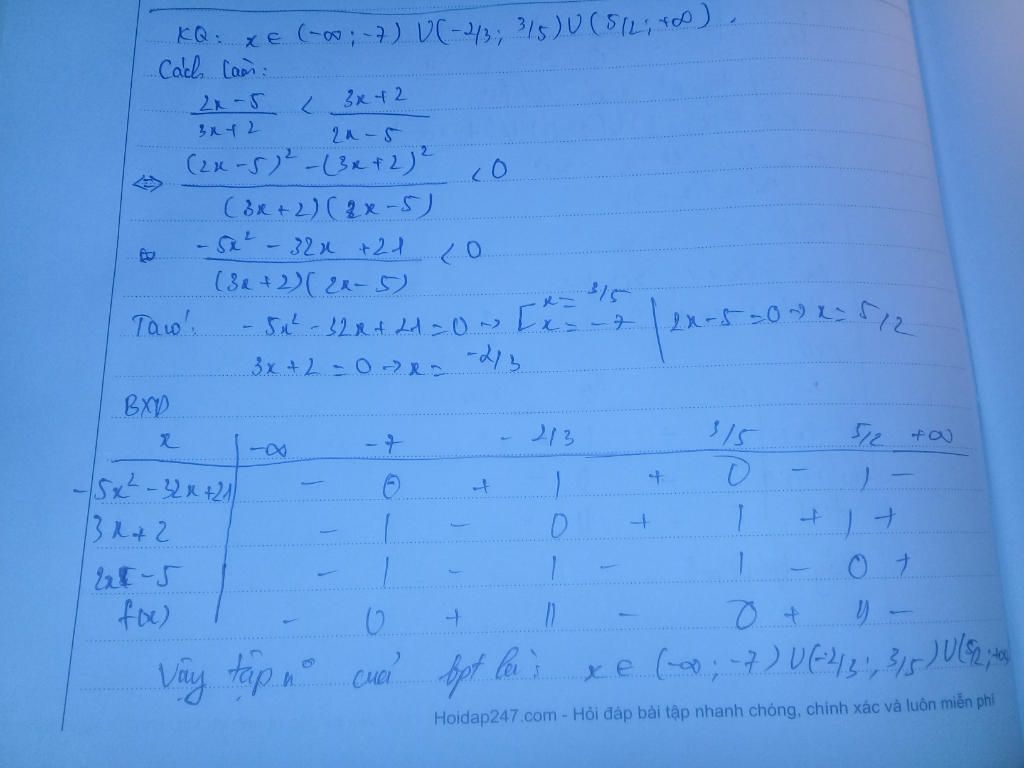 KQ: x ∈ (-∞; -7) ∪ (-2/3; 3/5) ∪ (5/2; +∞).
Cách làm:
(2x-5)/(3x+2) < (3x+2)/(2x-5)
⇔ ((2x-5)² - (3x+2)²)/((3x+2)(2x-5)) < 0
⇔ (-5x² - 32x + 21)/((3x+2)(2x-5)) < 0
Ta có: -5x² - 32x + 21 = 0 → [x = 3/5 x = -7 | 2x-5=0 → x = 5/2
3x+2 = 0 → x = -2/3
BXD
x | -∞ -7 -2/3 3/5 5/2 +∞
-5x² - 32x + 21 | - 0 + | + 0 - | -
3x+2 | - | - 0 + | + | +
2x-5 | - | - | - | - 0 +
f(x) | - 0 + || - 0 + || -
Vậy tập n° của bpt là: x ∈ (-∞; -7) ∪ (-2/3; 3/5) ∪ (5/2; +∞
Hoidap247.com - Hỏi đáp bài tập nhanh chóng, chính xác và luôn miễn phí